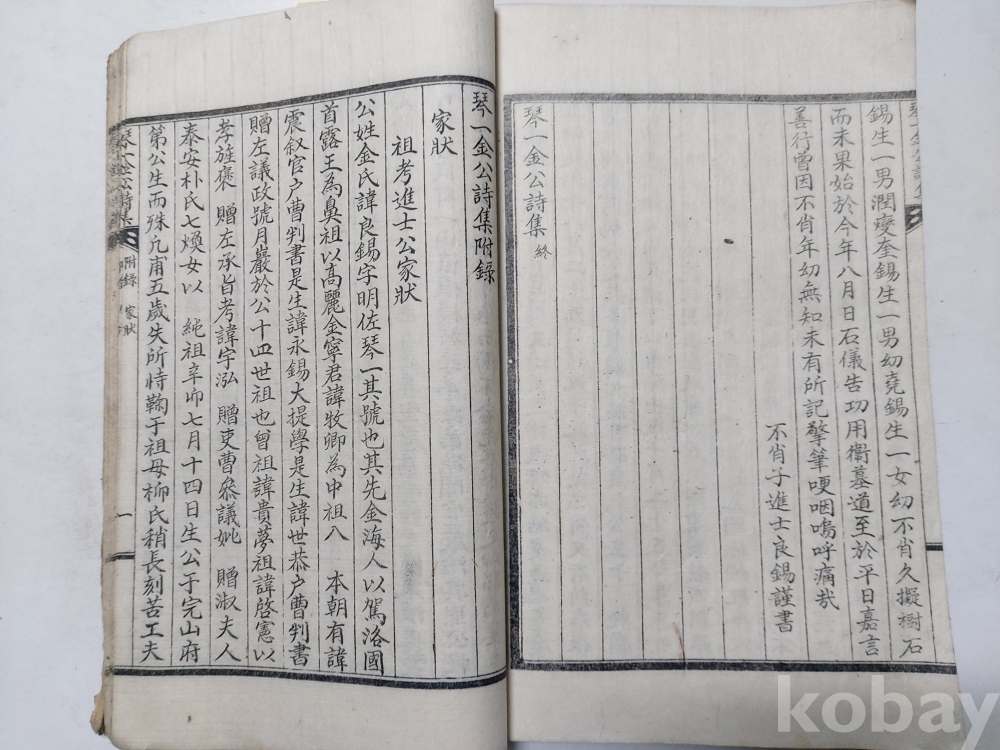 錫生一男潤夔奎錫生一男幼堯錫生一女幼不肖久擬樹石
而未果始於今年八月日石儀告功用衛墓道至於平日嘉言
善行曾因不肖年幼無知未有所記擎筆哽咽嗚呼痛哉
不肖子進士良錫謹書
琴一金公詩集 終
琴一金公詩集附錄
家狀
祖考進士公家狀
公姓金氏諱良錫字明佐琴一其號也其先金海人以駕洛國
首露王為鼻祖以高麗金寧君諱牧卿為中祖入 本朝有諱
震叙官户曹判書是生諱永錫大提學是生諱世恭户曹判書
贈左議政號月巖於公十四世祖也曾祖諱貴夢祖諱啓憲以
孝旌褒 贈左承旨考諱宇泓 贈吏曹叅議妣 贈淑夫人
泰安朴氏七煥女以 純祖辛卯七月十四日生公于完山府
第公生而殊凢甫五歲失所恃鞠于祖母柳氏稍長刻苦工夫
琴一金公詩集 附錄 家狀 一
kobay